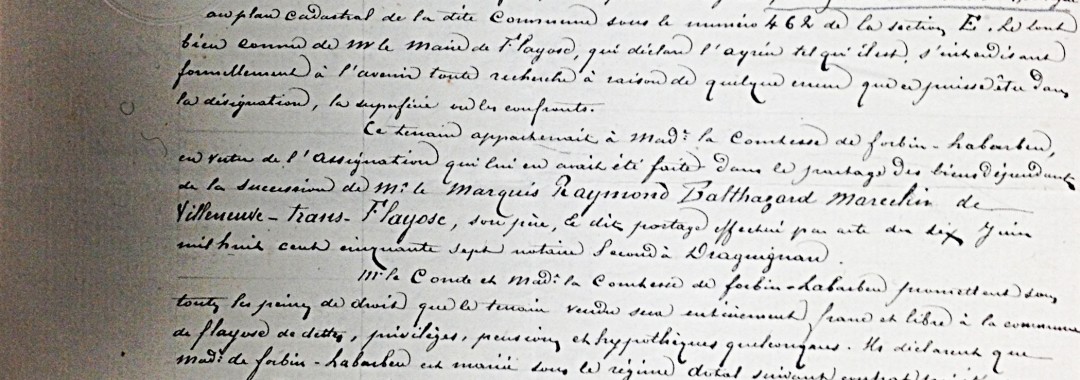 au plan cadastral de la dite Commune sous le numéro 462 de la section E. Le tout
bien connu de Mr le Maire de Flayosc, qui déclare l'agréer tel qu'il est, s'interdisant
formellement à l'avenir toute recherche à raison de quelque erreur que ce puisse être dans
la désignation, la superficie ou les confronts.
Ce terrain appartenait à Made la Comtesse de forbin-Labarben,
en vertu de l'assignation qui lui en avait été faite dans le partage des biens dépendants
de la succession de Mr le Marquis Raymond Balthazard Marcelin de
Villeneuve-trans-Flayosc, son père, le dit partage effectué par acte du dix Juin
mil huit cent cinquante sept notaire Segond à Draguignan.
Mr le Comte et Made la Comtesse de forbin-Labarben promettent sous
toutes les peines de droit que le terrain vendu sera entièrement franc et libre à la commune
de flayosc de dettes, privilèges, pensions et hypothèques quelconques. Ils déclarent que
Made de forbin-Labarben est mariée sous le régime dotal suivant contrat